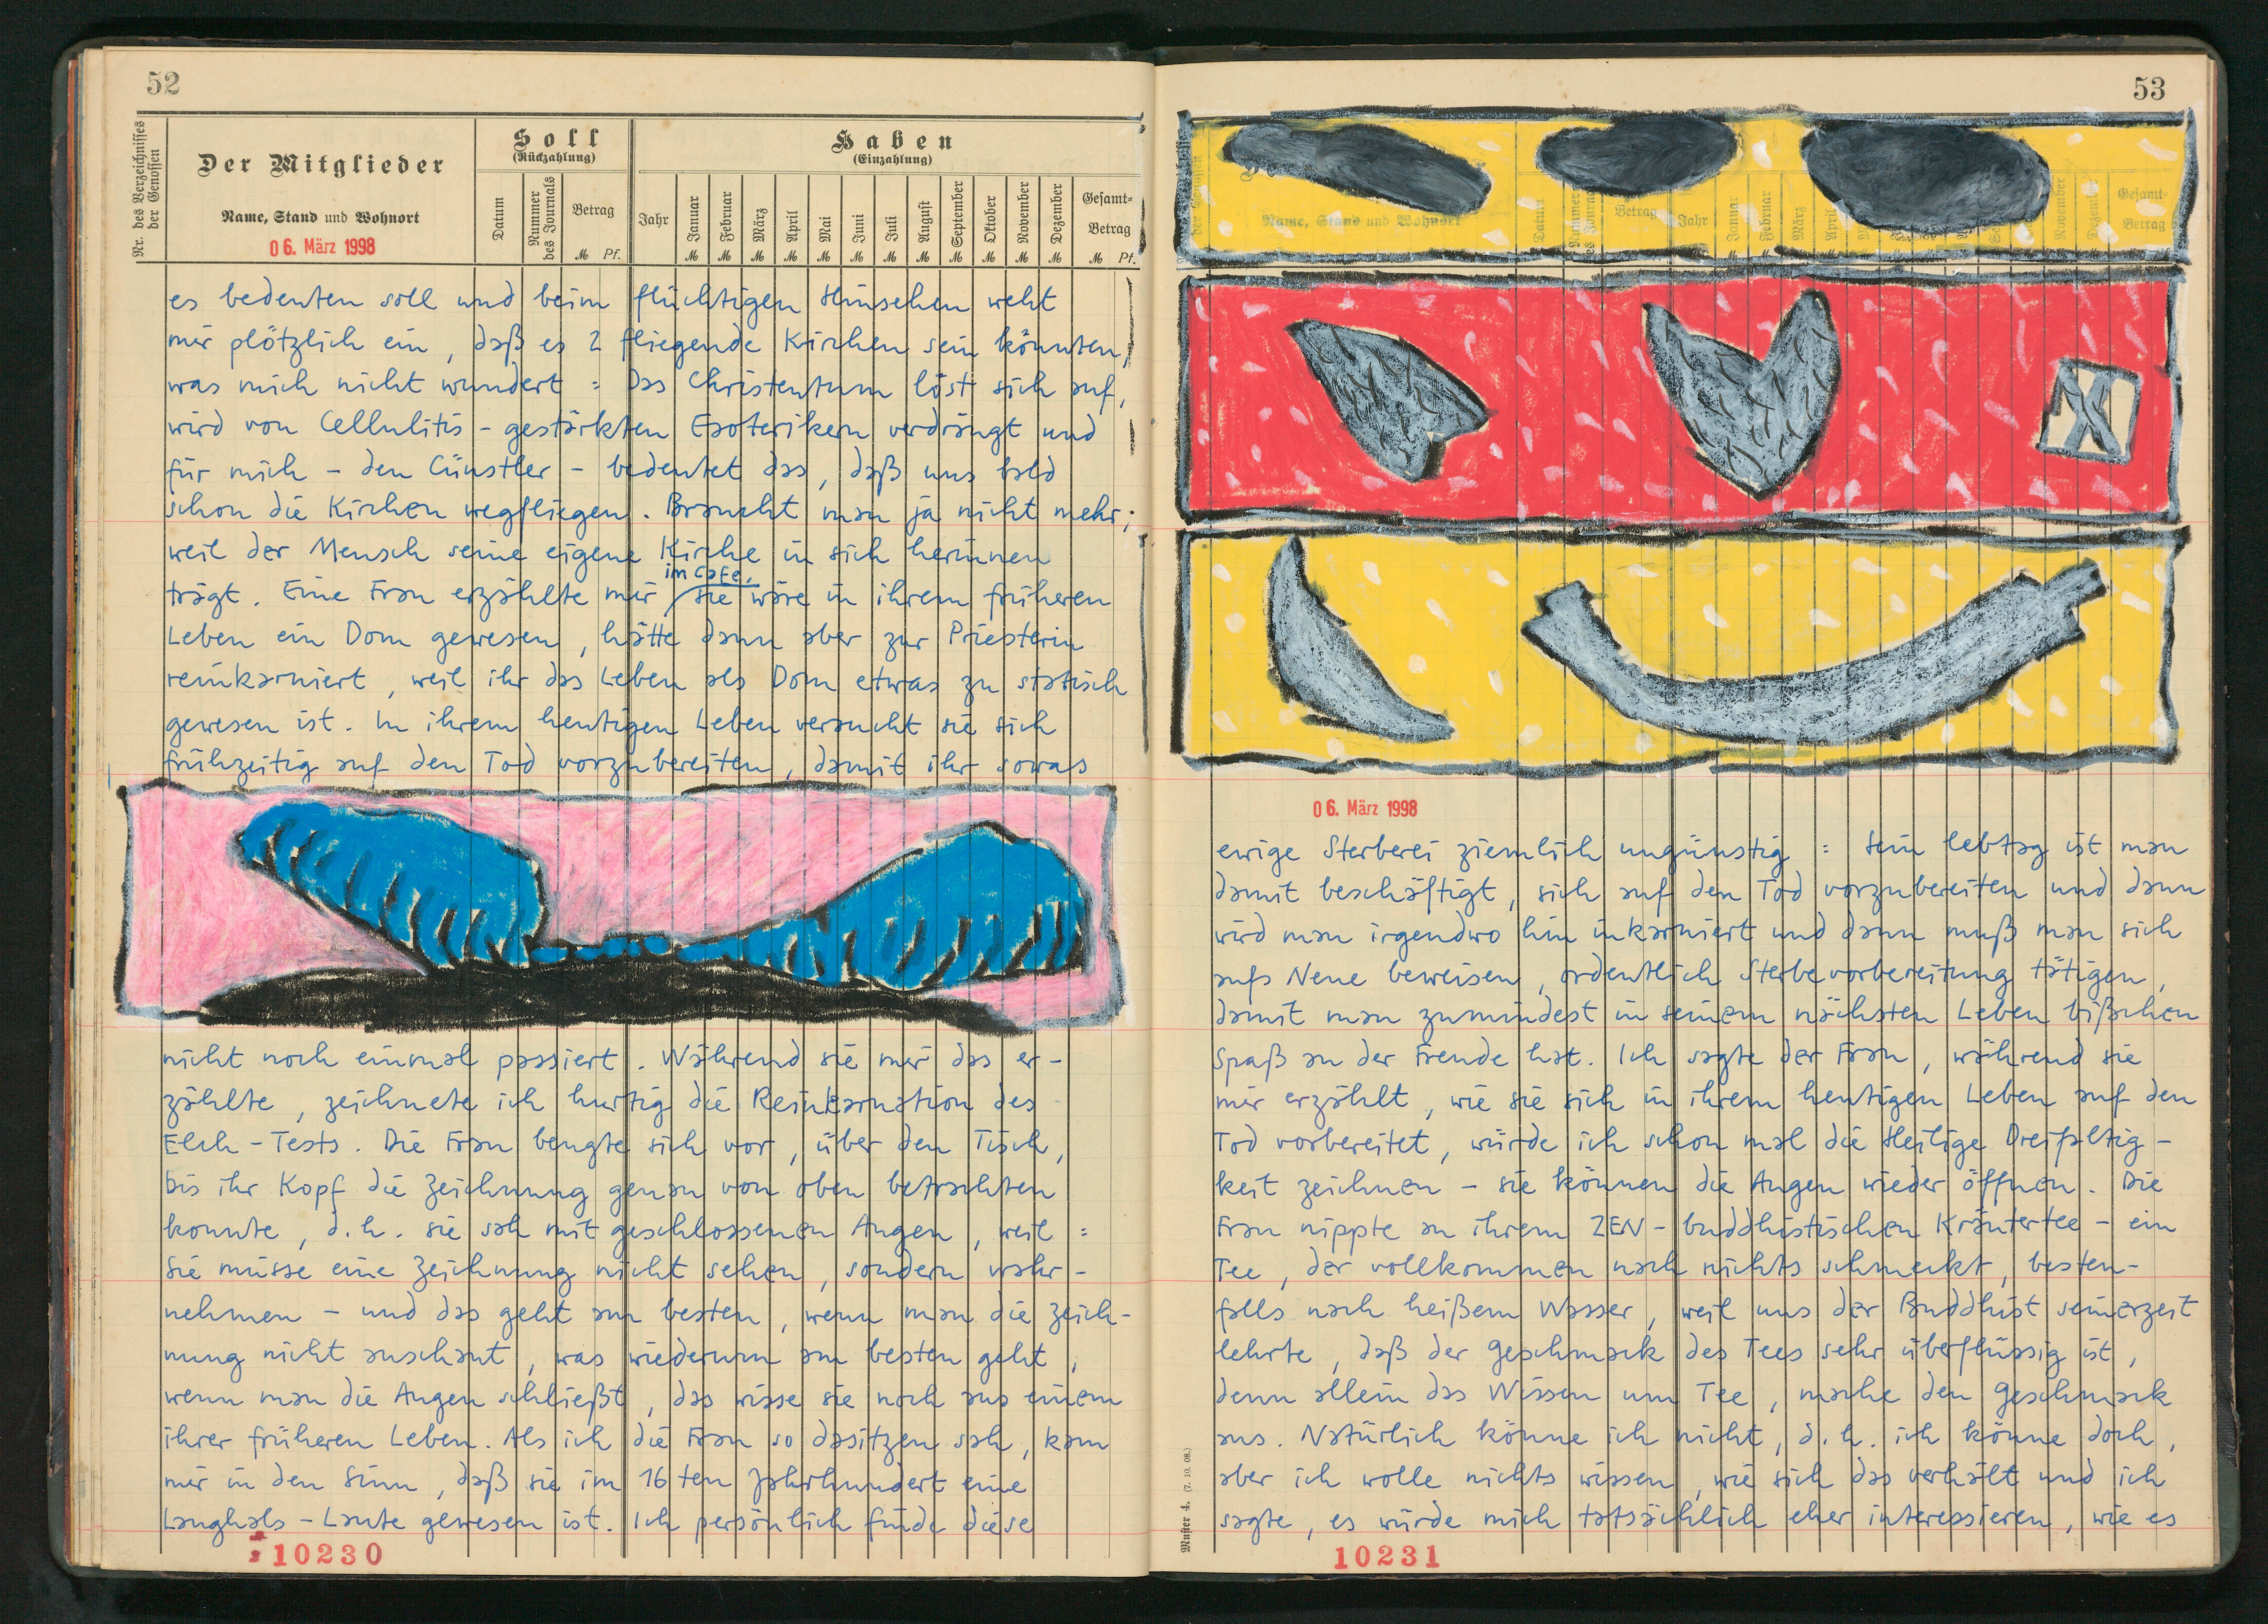 52
Nr. des Verzeichnisses der Genossen
Der Mitglieder
Name, Stand und Wohnort
06. März 1998
Soll
(Rückzahlung)
Datum
Nummer des Journals
Betrag
M Pf.
Haben
(Einzahlung)
Jahr
Januar
Februar
März
April
Mai
Juni
Juli
August
September
Oktober
November
Dezember
Gesamt-
Betrag
M M M M M M M M M M M M M Pf.
es bedeuten soll und beim flüchtigen Hinsehen weht
mir plötzlich ein, daß es 2 fliegende Kirchen sein könnten,
was mich nicht wundert: das Christentum löst sich auf,
wird von Cellulitis-gestärkten Esoterikern verdrängt und
für mich - den Cünstler - bedeutet das, daß uns bald
schon die Kirchen wegfliegen. Braucht man ja nicht mehr;
weil der Mensch seine eigene Kirche in sich herinnen
im Cafe,
trägt. Eine Frau erzählte mir sie wäre in ihrem früheren
Leben ein Dom gewesen, hätte dann aber zur Priesterin
reinkarniert, weil ihr das Leben als Dom etwas zu statisch
gewesen ist. In ihrem heutigen Leben versucht sie sich
frühzeitig auf den Tod vorzubereiten, damit ihr sowas
nicht noch einmal passiert. Während sie mir das er-
zählte, zeichnete ich hurtig die Reinkarnation des
Elch-Tests. Die Frau beugte sich vor, über den Tisch,
bis ihr Kopf die Zeichnung genau von oben betrachten
konnte, d.h. sie sah mit geschlossenen Augen, weil:
Sie müsse eine Zeichnung nicht sehen, sondern wahr-
nehmen - und das geht am besten, wenn man die Zeich-
nung nicht anschaut, was wiederum am besten geht,
wenn man die Augen schließt, das wisse sie noch aus einem
ihrer früheren Leben. Als ich die Frau so dasitzen sah, kam
mir in den Sinn, daß sie im 16ten Jahrhundert eine
Langhals-Laute gewesen ist. Ich persönlich finde diese
10230
53
Name, Stand und Wohnort
Datum
Nummer des Journals
Betrag
Jahr
Januar
Februar
März
April
November
Dezember
Gesamt-
Betrag
X
06. März 1998
ewige Sterberei ziemlich ungünstig: Sein Lebtag ist man
damit beschäftigt, sich auf den Tod vorzubereiten und dann
wird man irgendwo hin inkarniert und dann muß man sich
aufs Neue beweisen, ordentlich Sterbevorbereitung tätigen,
damit man zumindest in seinem nächsten Leben bißchen
Spaß an der Freude hat. Ich sagte der Frau, während sie
mir erzählt, wie sie sich in ihrem heutigen Leben auf den
Tod vorbereitet, würde ich schon mal die Heilige Dreifaltig-
keit zeichnen - sie können die Augen wieder öffnen. Die
Frau nippte an ihrem ZEN-buddhistischen Kräutertee - ein
Tee, der vollkommen nach nichts schmeckt, besten-
falls nach heißem Wasser, weil uns der Buddhist seinerzeit
lehrte, daß der Geschmack des Tees sehr überflüssig ist,
denn allein das Wissen um Tee, mache den Geschmack
aus. Natürlich könne ich nicht, d.h. ich könne doch,
aber ich wolle nichts wissen, wie sich das verhält und ich
sagte, es würde mich tatsächlich eher interessieren, wie es
Muster 4. (7. 10. 08.)
10231